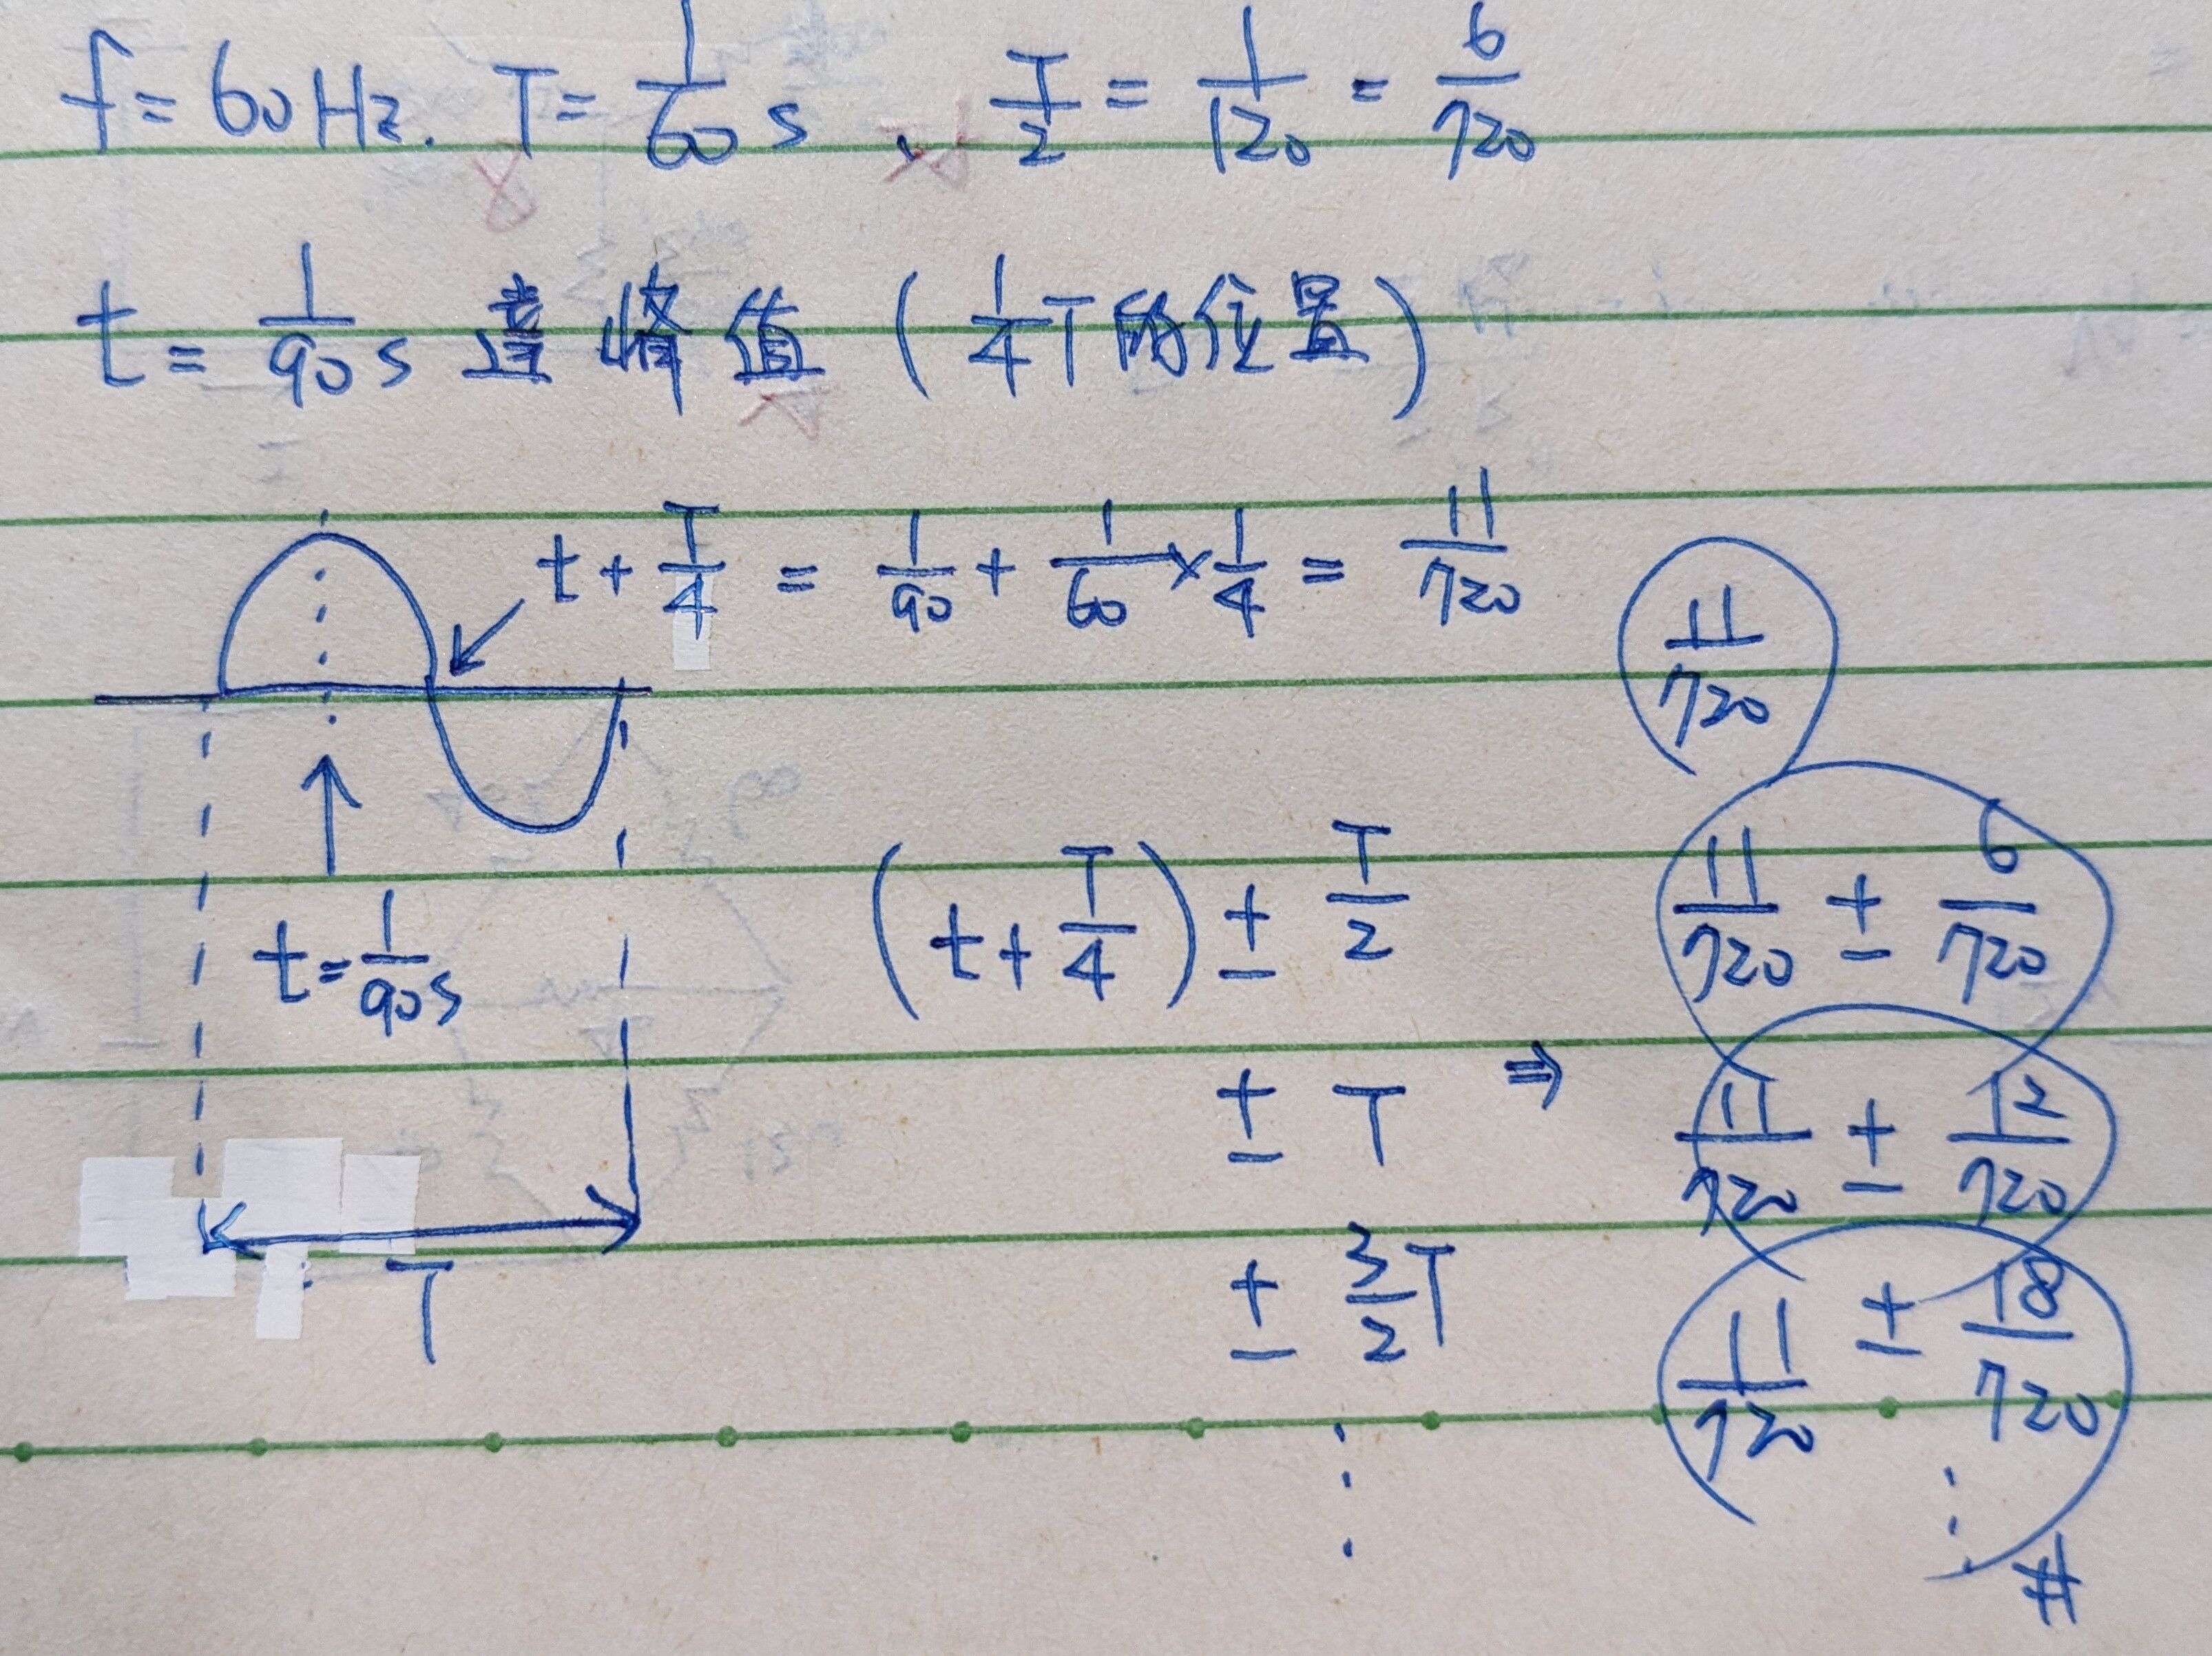 f = 60 Hz. T = 1/60 s 、 T/2 = 1/120 = 6/720
t = 1/90 s 達峰值 ( 1/4 T 的位置 )
t + T/4 = 1/90 + 1/60 × 1/4 = 11/720
11/720
t = 1/90 s
( t + T/4 ) ± T/2
± T
± 3/2 T
⋮
⇒
11/720 ± 6/720
11/720 ± 12/720
11/720 ± 18/720
⋮
#
T